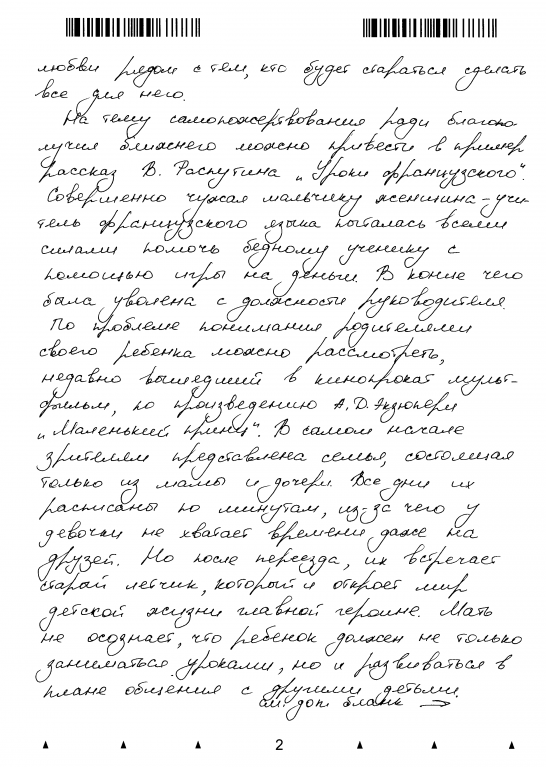 любви рядом с тем, кто будет стараться сделать
все для него.
На тему самопожертвования ради благопо-
лучия ближнего можно привести в пример
рассказ В. Распутина „Уроки французского“.
Совершенно чужая мальчику женщина-учи-
тель французского языка пыталась всеми
силами помочь бедному ученику с
помощью игры на деньги. В конце чего
была уволена с должности руководителя.
По проблеме понимания родителями
своего ребенка можно рассмотреть,
недавно вышедший в кинопрокат мульт-
фильм, по произведению А.Д. Экзюпери
„Маленький принц“. В самом начале
зрителям представлена семья, состоящая
только из мамы и дочери. Все дни их
расписаны по минутам, из-за чего у
девочки не хватает времени даже на
друзей. Но после переезда, их встречает
старый летчик, который и откроет мир
детской жизни главной героине. Мать
не осознает, что ребенок должен не только
заниматься уроками, но и развиваться в
плане общения с другими детьми.
см. доп. бланк →
2